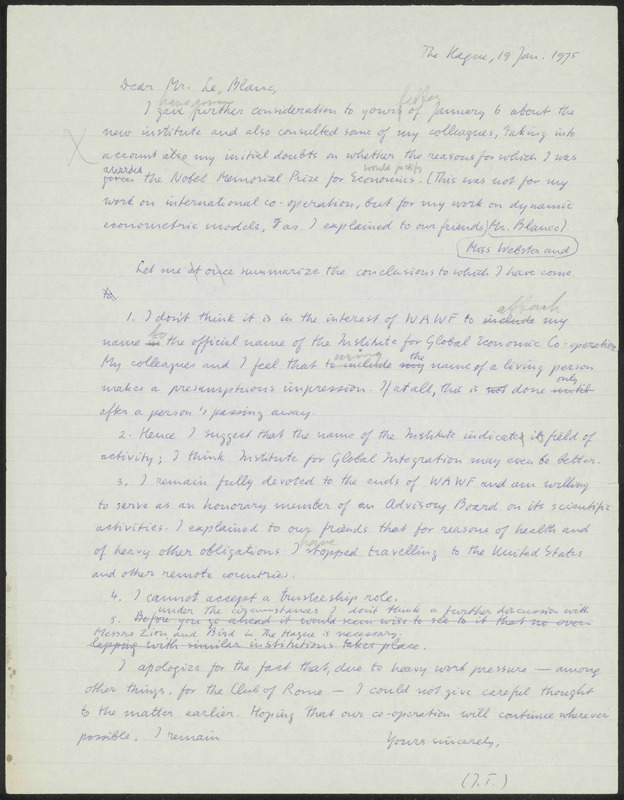 The Hague, 19 Jan. 1975
Dear Mr. Le, Blanc,
have given letter
I gave further consideration to yours of January 6 about the
new institute and also consulted some of my colleagues, taking into
account also my initial doubts on whether the reasons for which I was
awarded would justify
given the Nobel Memorial Prize for Economics. (This was not for my
work on international co-operation, but for my work on dynamic
econometric models, as I explained to our friends Mr. Blanco)
Miss Webster and
Let me at once summarize the conclusions to which I have come
to.
attach
1. I don't think it is in the interest of WAWF to include my
to
name in the official name of the Institute for Global Economic Co-operation
using the
My colleagues and I feel that to include my name of a living person
only
makes a presumptuous impression. If at all, this is not done until
after a person's passing away.
2. Hence I suggest that the name of the Institute indicates its field of
activity; I think Institute for Global Integration may even be better.
3. I remain fully devoted to the ends of WAWF and am willing
to serve as an honorary member of an Advisory Board on its scientific
activities. I explained to our friends that for reasons of health and
have
of heavy other obligations I stopped travelling to the United States
and other remote countries.
4. I cannot accept a trusteeship role.
under the circumstances I don't think a further discussion with
5. Before you go ahead it would seem wise to see to it that no over-
Messrs Zion and Bird in The Hague is necessary.
lapping with similar institutions takes place.
I apologize for the fact that, due to heavy work pressure — among
other things, for the Club of Rome — I could not give careful thought
to the matter earlier. Hoping that our co-operation will continue wherever
possible, I remain Yours sincerely,
(J.T.)